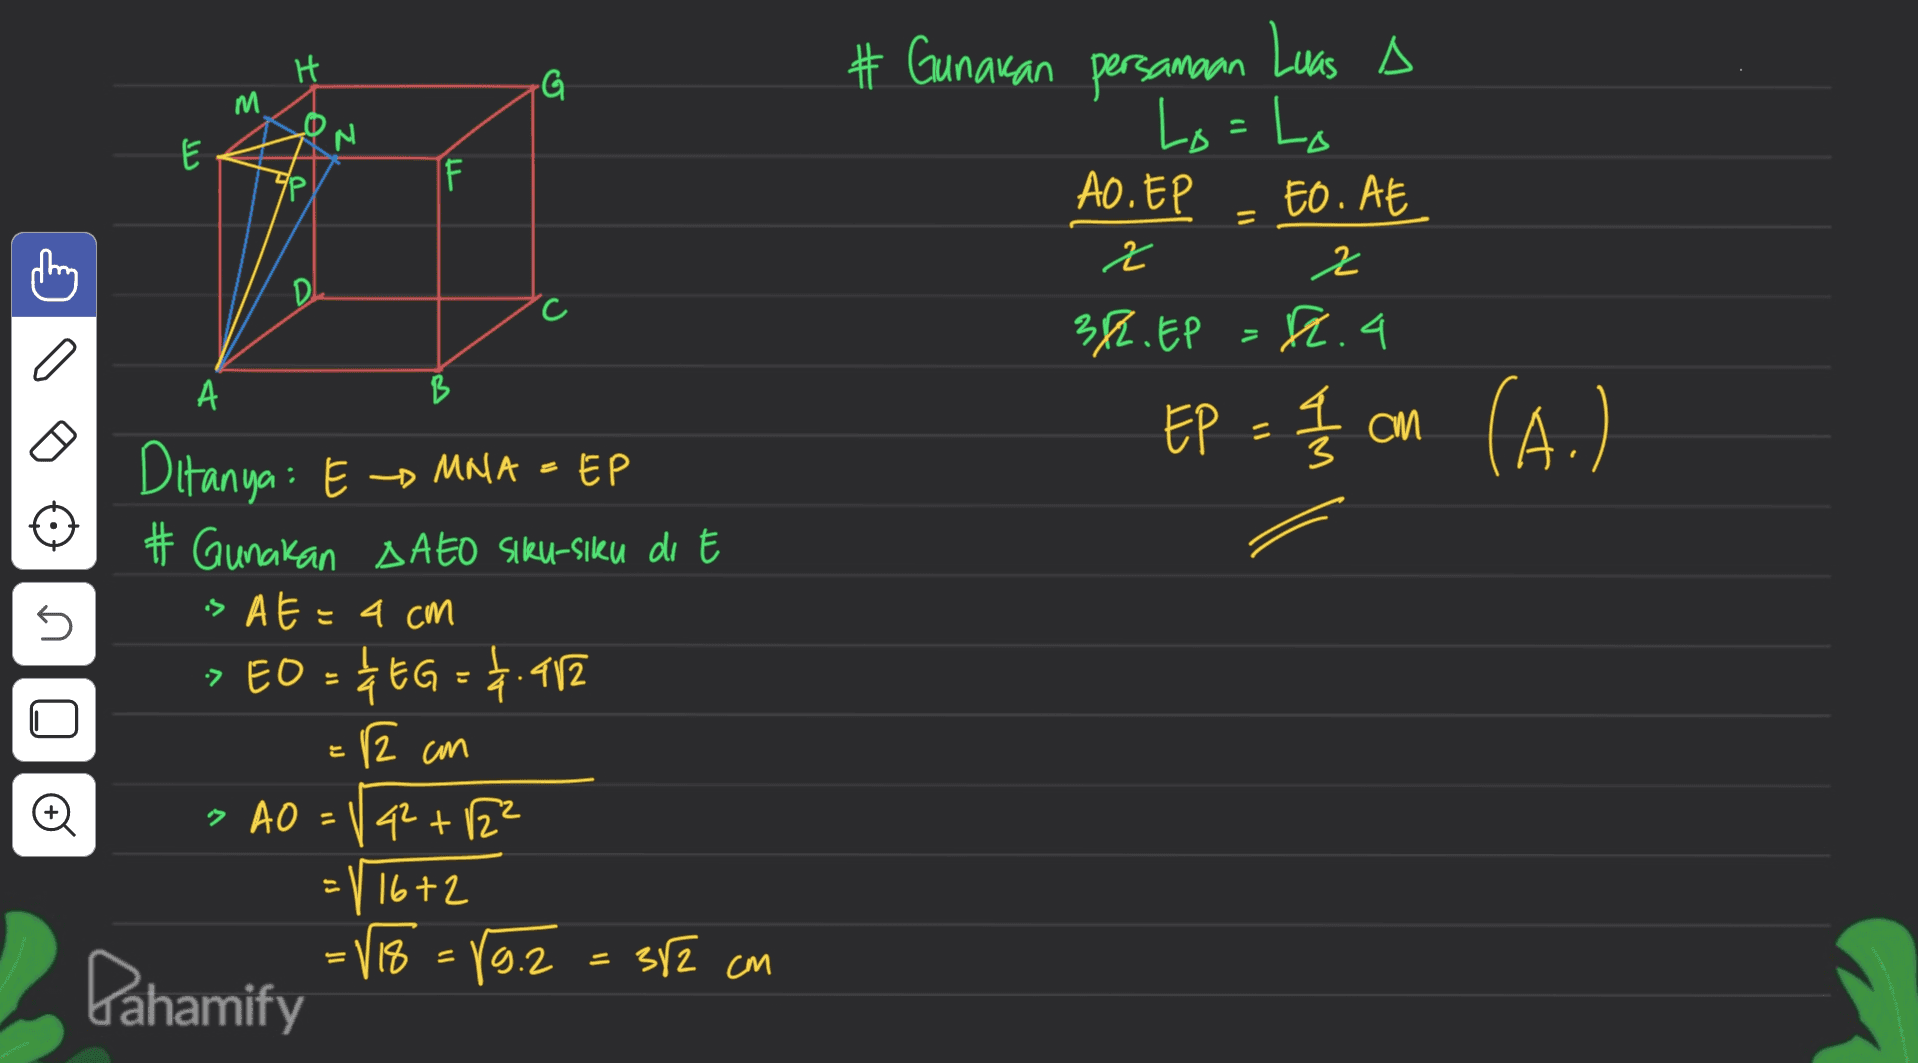 H
G
M
O
N
E
F
P
D
C
A
B
Ditanya : E → MNA = EP
# Gunakan △AEO siku-siku di E
-> AE = 4 cm
-> EO = 1/4 EG = 1/4 . 4√2
= √2 cm
> AO = √(4² + √2²)
= √(16+2)
= √18 = √9.2 = 3√2 cm
# Gunakan persamaan Luas △
L△ = L△
AO.EP/2 = EO.AE/2
3√2.EP = √2.4
EP = 4/3 cm (A.)
Pahamify